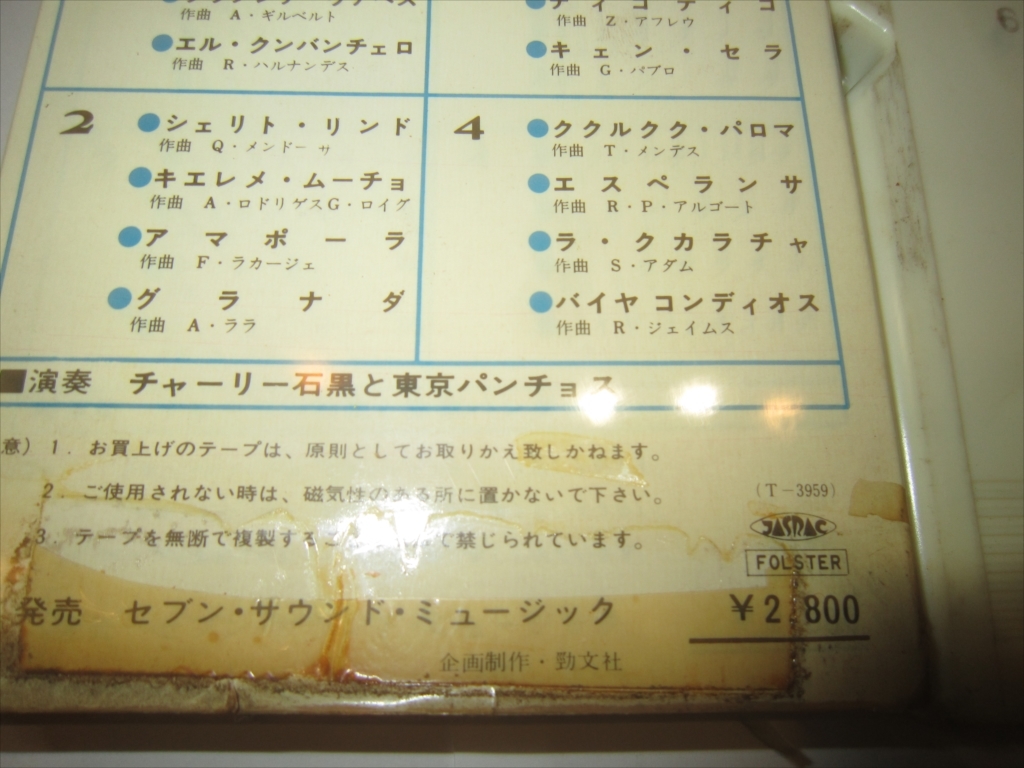 作曲 A・ギルベルト
エル・クンバンチェロ
作曲 R・ハルナンデス
作曲 Z・アフレウ
キェン・セラ
作曲 G・パブロ
2
シェリト・リンド
作曲 Q・メンドーサ
キエレメ・ムーチョ
作曲 A・ロドリゲスG・ロイグ
アマポーラ
作曲 F・ラカージェ
グラナダ
作曲 A・ララ
4
ククルクク・パロマ
作曲 T・メンデス
エスペランサ
作曲 R・P・アルゴート
ラ・クカラチャ
作曲 S・アダム
バイヤ コンディオス
作曲 R・ジェイムス
■演奏 チャーリー石黒と東京パンチョス
意) 1. お買上げのテープは、原則としてお取りかえ致しかねます。
2. ご使用されない時は、磁気性のある所に置かないで下さい。
3. テープを無断で複製するこ て禁じられています。
(T-3959)
JASRAC
FOLSTER
発売 セブン・サウンド・ミュージック ¥2,800
企画制作・勁文社